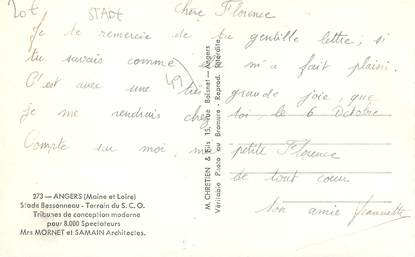 20t
STADT
Chère Florence
Je te remercie de ta gentille lettre ; si
tu savais comme elle m'a fait plaisir.
C'est avec une très grande joie, que
je me rendrais chez toi, le 6 Octobre
Compte sur moi, ma petite Florence
de tout coeur
ton amie Jeannette
49
273 — ANGERS (Maine et Loire)
Stade Bessonneau - Terrain du S. C. O.
Tribunes de conception moderne
pour 8.000 Spectateurs
Mrs MORNET et SAMAIN Architectes.
M. CHRETIEN & Fils 15, rue Boisnet — Angers
Véritable Photo au Bromure - Reprod. Interdite